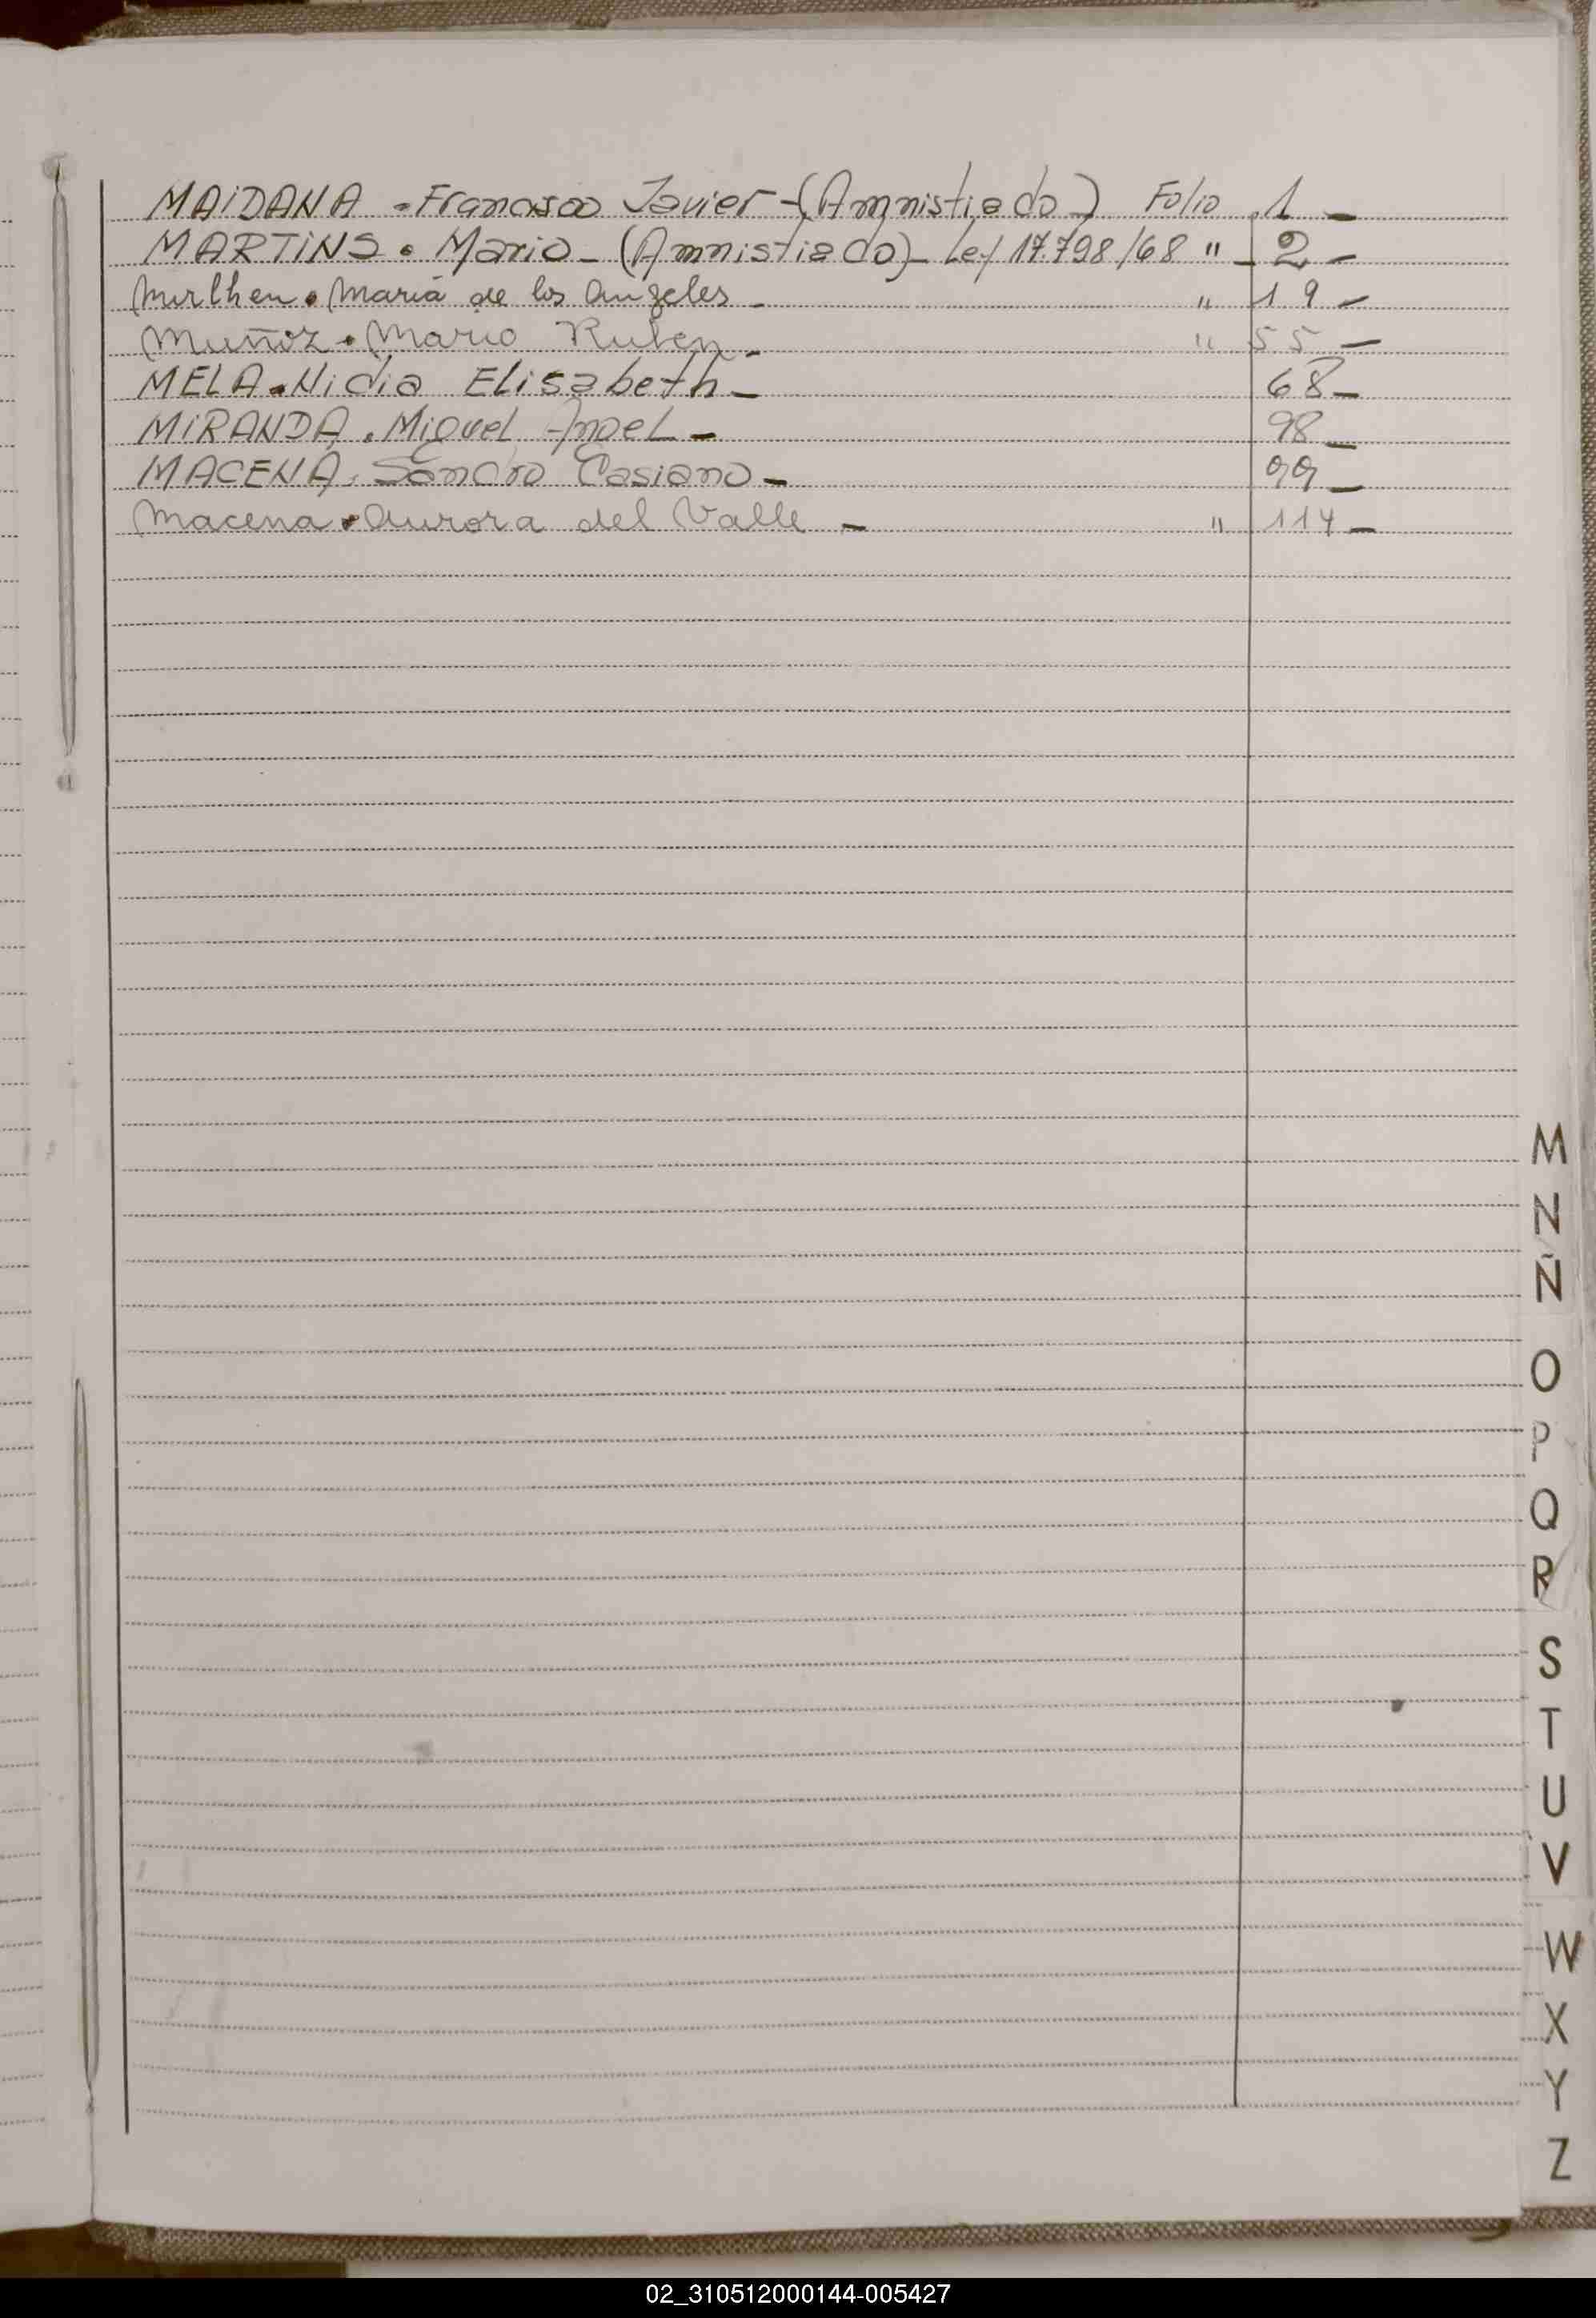 MAIDANA - Francisco Javier - (Amnistiado) Folio 1 -
MARTINS. Mario - (Amnistiado) - Ley 17.798/68 " - 2 -
Mirlhen. María de los Angeles - " 19 -
Muñoz. Mario Ruben - " 55 -
MELA. Nidia Elisabeth - 68 -
MIRANDA. Miguel Angel - 98 -
MACENA. Sandro Casiano - 99 -
Macena. Aurora del Valle - " 114 -
M
N
Ñ
O
P
Q
R
S
T
U
V
W
X
Y
Z
02_310512000144-005427